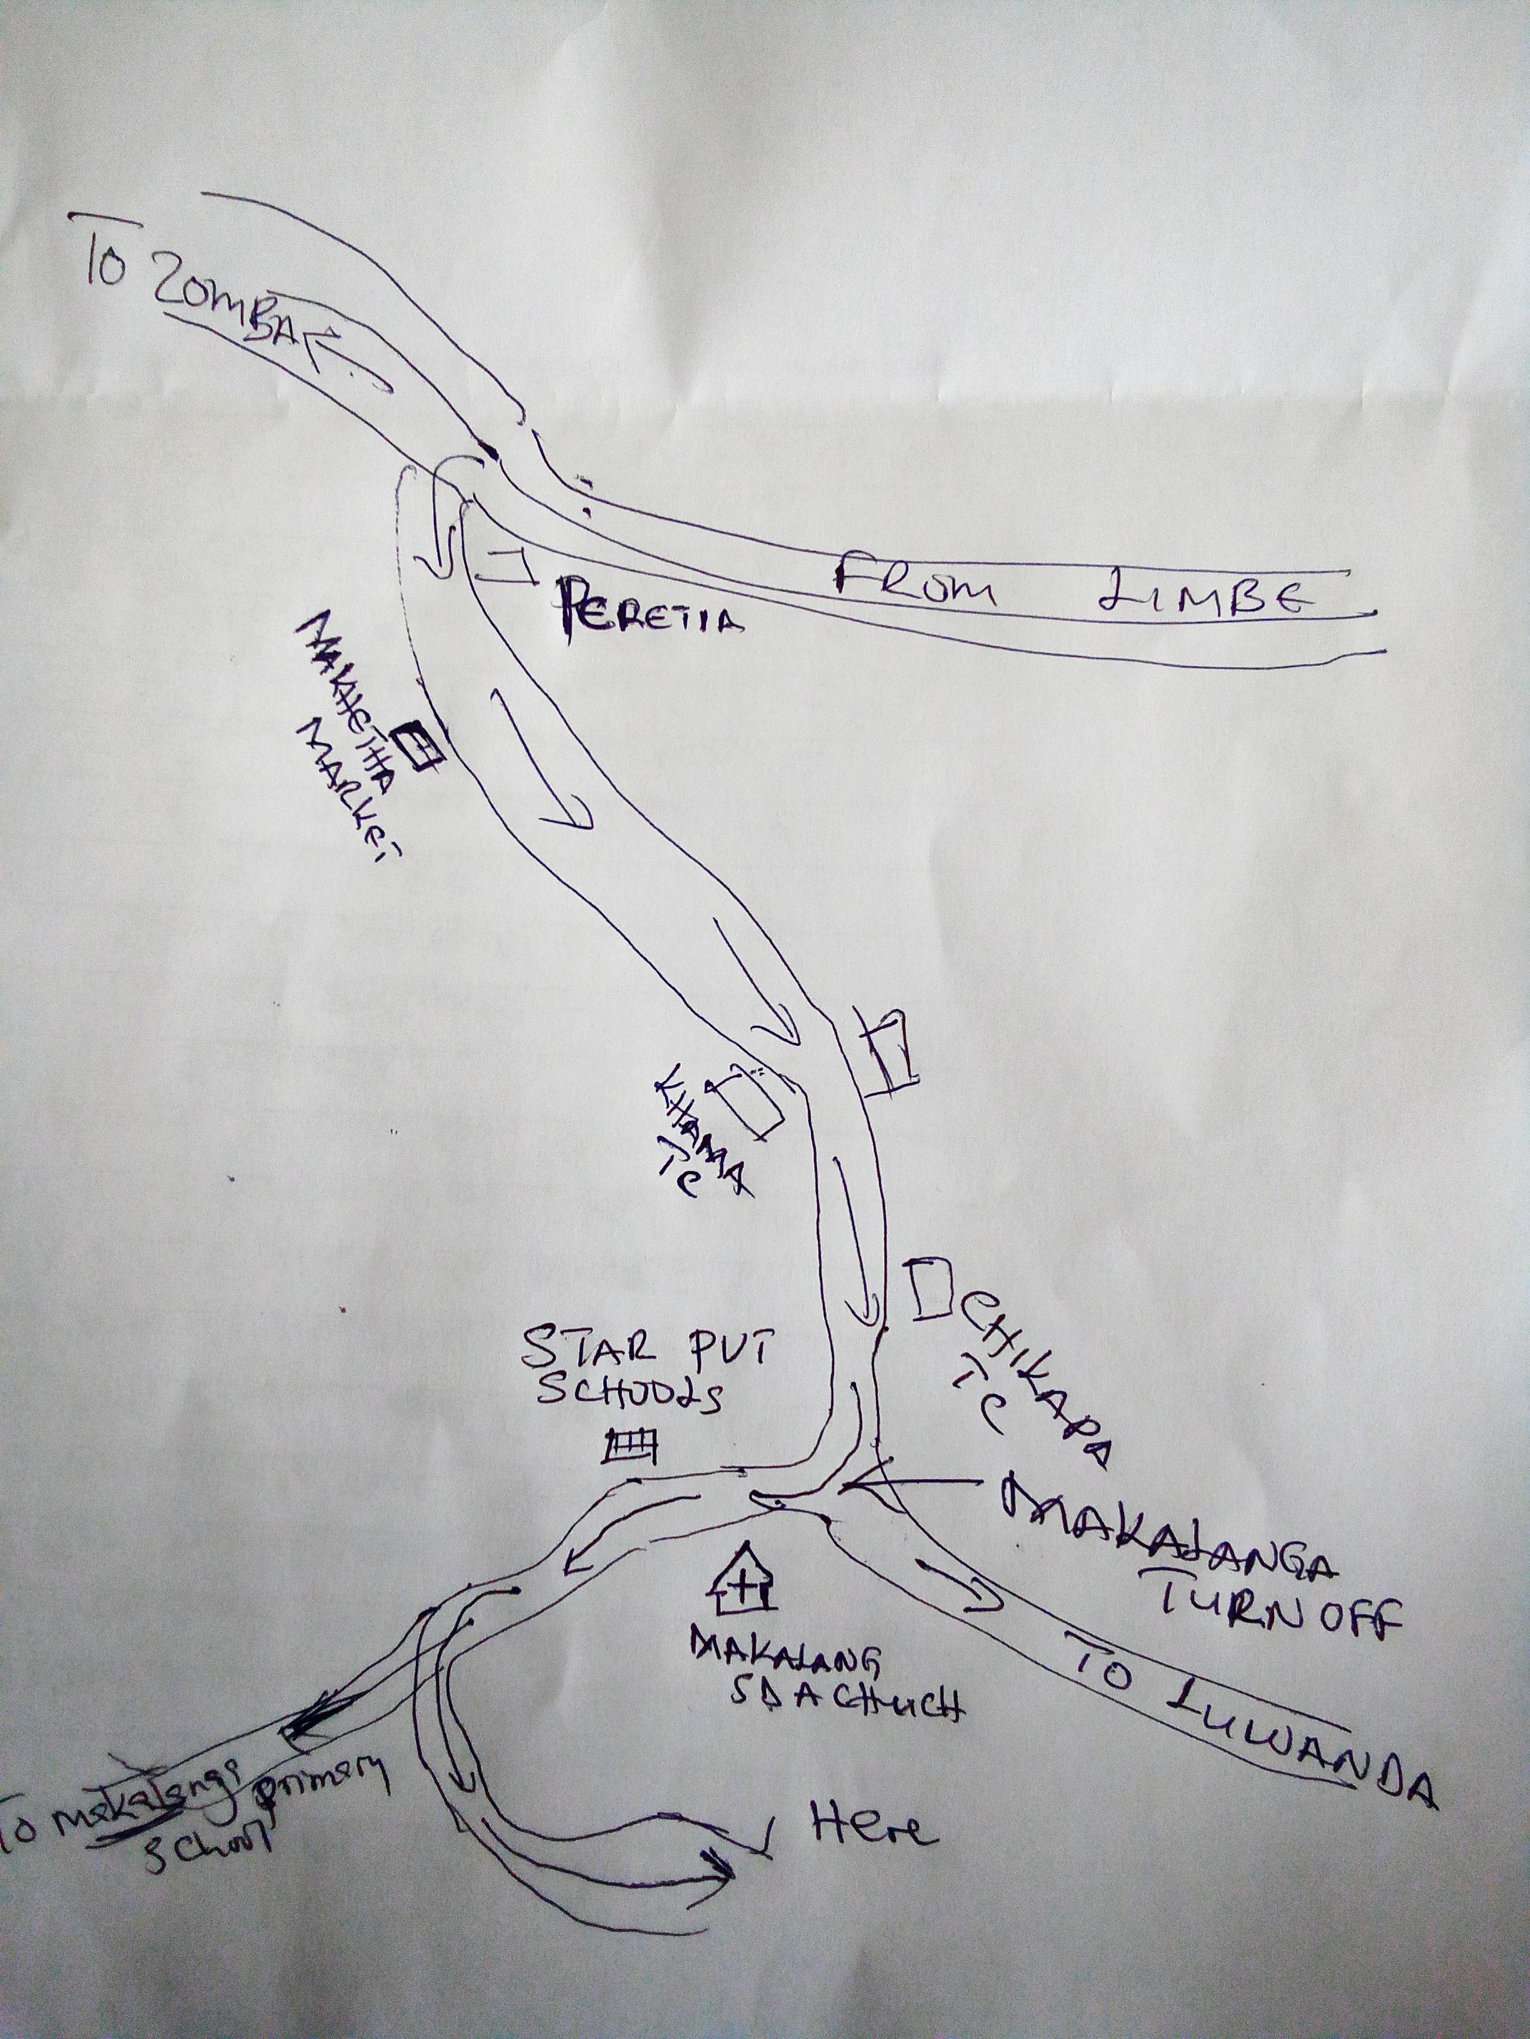 TO ZOMBA
FROM LIMBE
PERETIA
MAKHETHA
MARKET
KHAMA
TC
CHIKAPA
TC
STAR PUT
SCHOOLS
MAKALANGA
TURN OFF
MAKALANG
SDA CHUCH
TO LUWANDA
To makalanga primary
school
Here